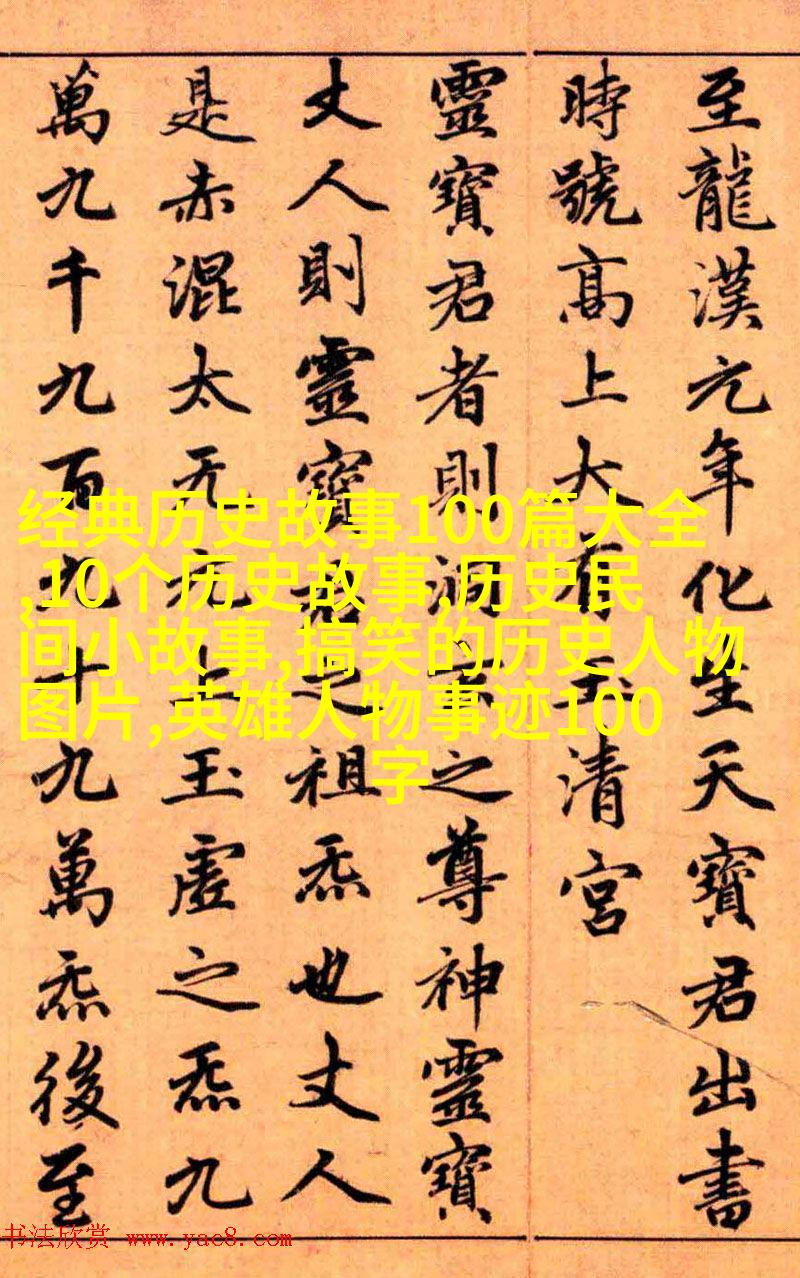 至龍漢元年化生天寶君出書
時號高上大有玉清宮
靈寶君者則洞玄之尊神靈寶
丈人則靈寶君之祖炁也丈人
是赤混太无上玉虛之炁九
萬九千九百九十九萬炁後至
经典历史故事100篇大全
,10个历史故事,历史民
间小故事,搞笑的历史人物
图片,英雄人物事迹100
字
书法欣赏 www.yac8.com